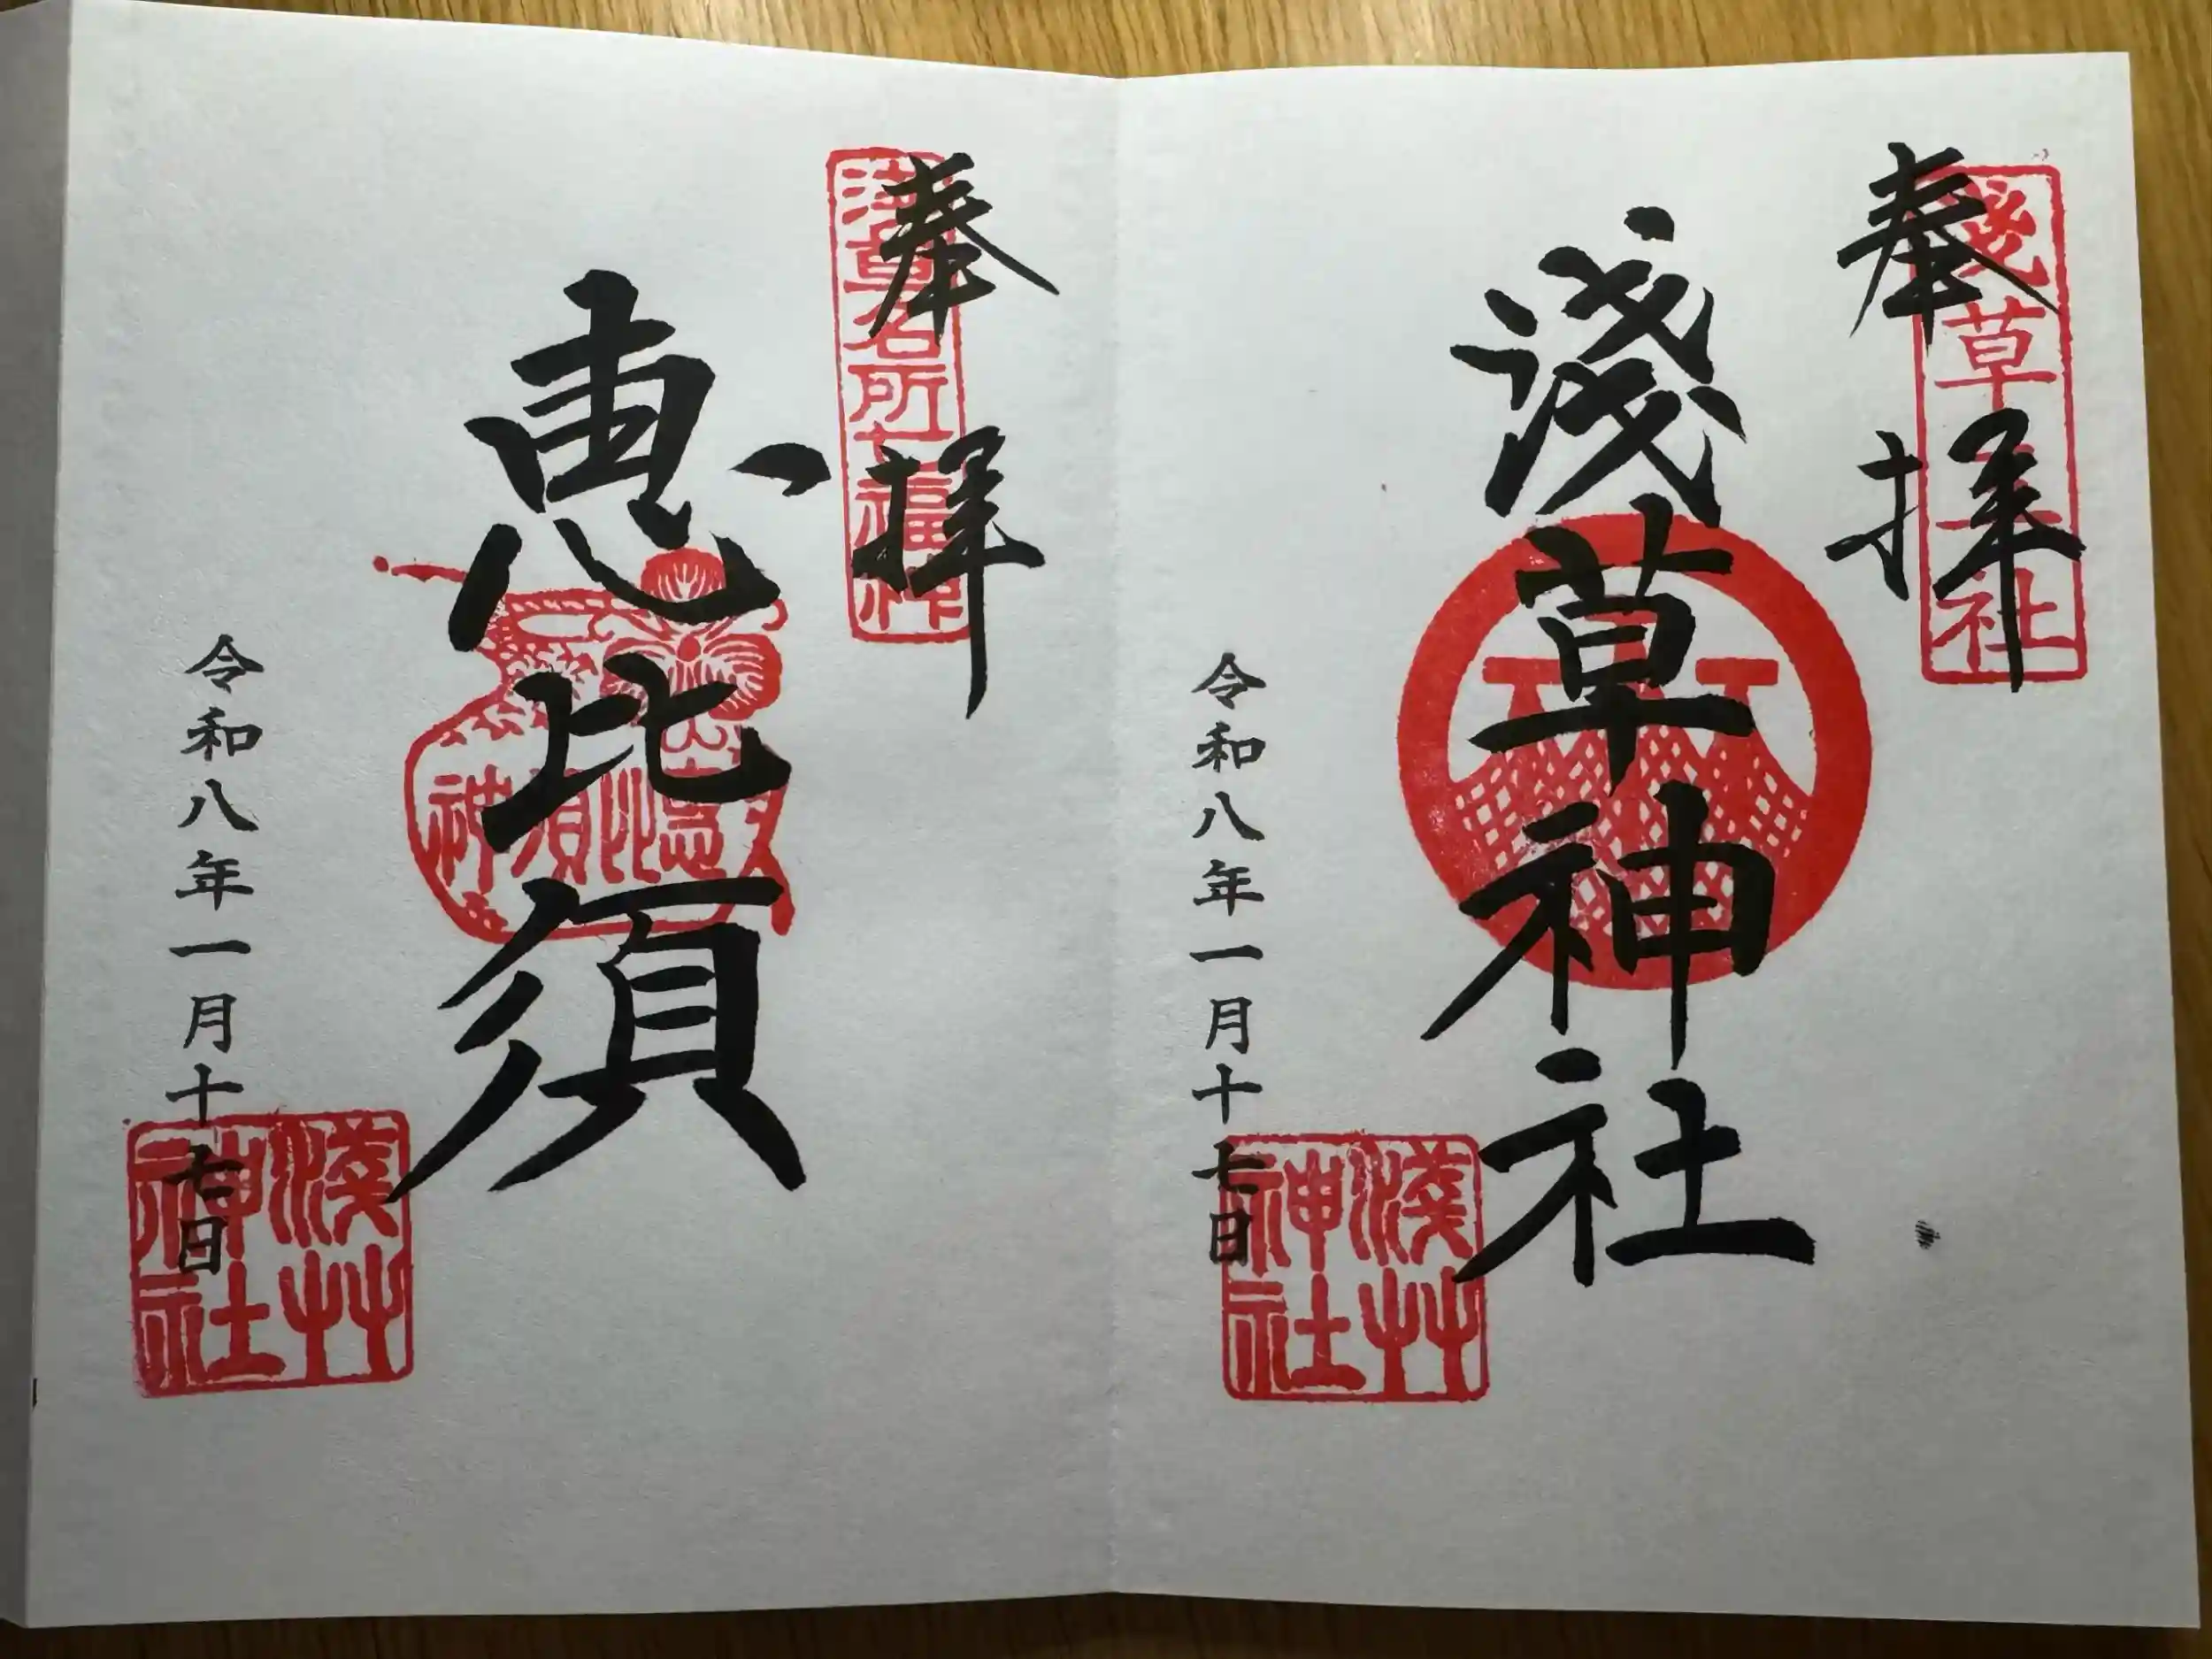 奉拝
浅草神社
淺草神社
令和八年一月十七日
淺艸
神社
奉拝
浅草名所七福神
恵比須
恵比須神
令和八年一月十七日
淺艸
神社